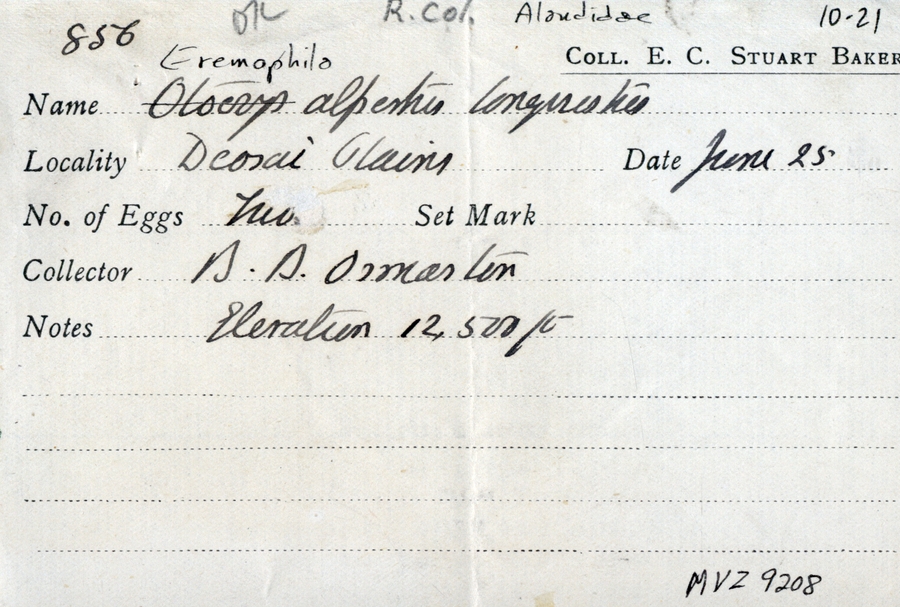 OK R. Col. Alaudidae 10-21
856
Eremophila COLL. E. C. STUART BAKER
Name Otocorys alpestris longirostris
Locality Deosai Plains Date June 25
No. of Eggs Two. Set Mark
Collector B. B. Osmaston
Notes Elevation 12,500 ft
MVZ 9208